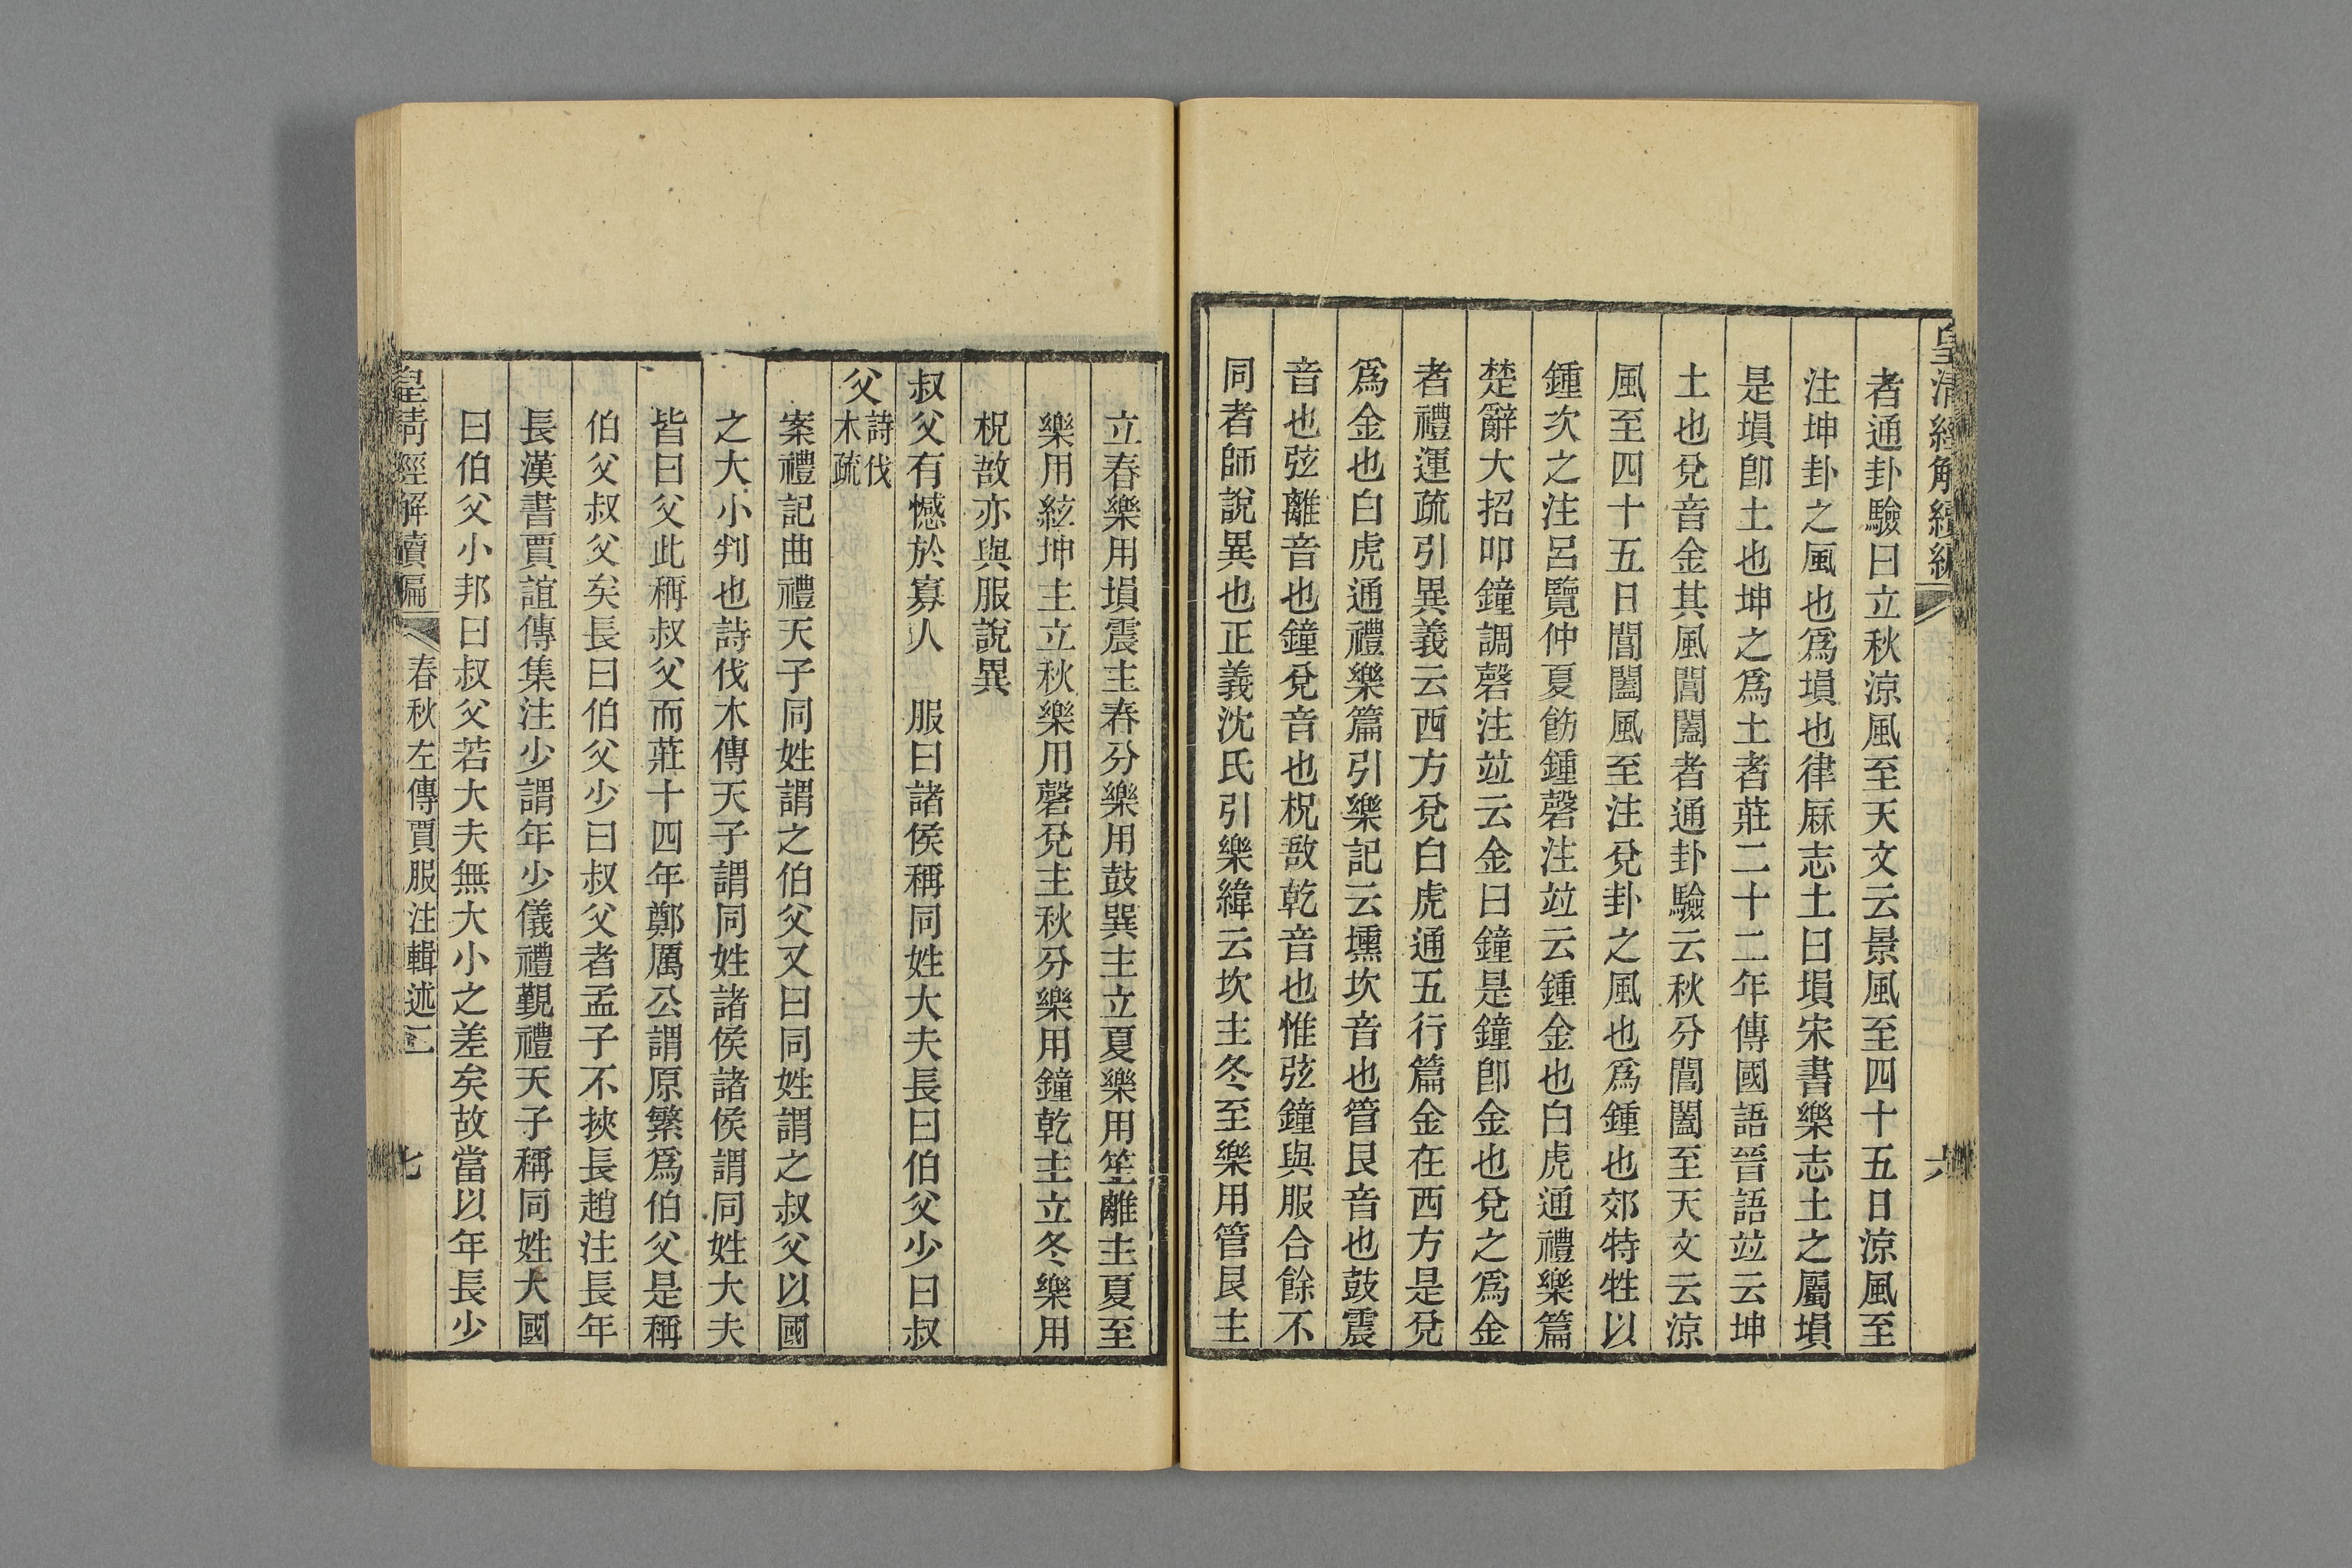 皇清經解續編
六
者通卦驗曰立秋涼風至天文云景風至四十五日涼風至
注坤卦之風也爲塤也律厤志土曰塤宋書樂志土之屬塤
是塤卽土也坤之爲土者莊二十二年傳國語晉語竝云坤
土也兌音金其風閶闔者通卦驗云秋分閶闔至天文云涼
風至四十五日閶闔風至注兌卦之風也爲鍾也郊特牲以
鍾次之注呂覽仲夏飭鍾磬注竝云鍾金也白虎通禮樂篇
楚辭大招叩鐘調磬注竝云金曰鐘是鐘卽金也兌之爲金
者禮運疏引異義云西方兌白虎通五行篇金在西方是兌
爲金也白虎通禮樂篇引樂記云壎坎音也管艮音也鼓震
音也弦離音也鐘兌音也柷敔乾音也惟弦鐘與服合餘不
同者師說異也正義沈氏引樂緯云坎主冬至樂用管艮主
立春樂用塤震主春分樂用鼓巽主立夏樂用笙離主夏至
樂用絃坤主立秋樂用磬兌主秋分樂用鐘乾主立冬樂用
柷敔亦與服說異
叔父有憾於寡人 服曰諸侯稱同姓大夫長曰伯父少曰叔
父詩伐木疏
案禮記曲禮天子同姓謂之伯父又曰同姓謂之叔父以國
之大小判也詩伐木傳天子謂同姓諸侯諸侯謂同姓大夫
皆曰父此稱叔父而莊十四年鄭厲公謂原繁爲伯父是稱
伯父叔父矣長曰伯父少曰叔父者孟子不挾長趙注長年
長漢書賈誼傳集注少謂年少儀禮覲禮天子稱同姓大國
曰伯父小邦曰叔父若大夫無大小之差矣故當以年長少
皇清經解續編
春秋左傳賈服注輯述二
七